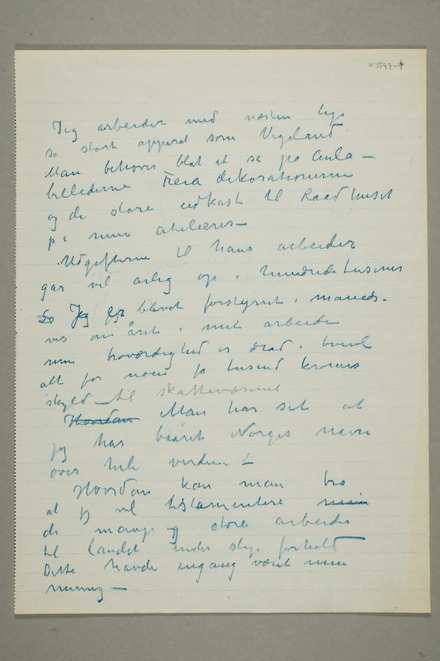 N 2597-4
Jeg arbeider med næsten lige
så stort apparat som Vigeland
Man behøver blot at se på Aula-
billederne Freia dekorationerne
og de store udkast til Raadhuset
på mine atelierer
Udgifterne til hans arbeider
går vel årlig op i hundredetusener
Så Jeg er blevet forstyrret i måneds-
vis om året i mit arbeide
min
alt for nogle få tusend kroners
skyld til skattevæsenet
Hvordan Man har set at
jeg har båret Norges navn
over hele verden
Hvordan kan man tro
at jeg vil testamentere mine
de mange og store arbeider
til landet under slige forhold
Dette havde engang vært min
mening